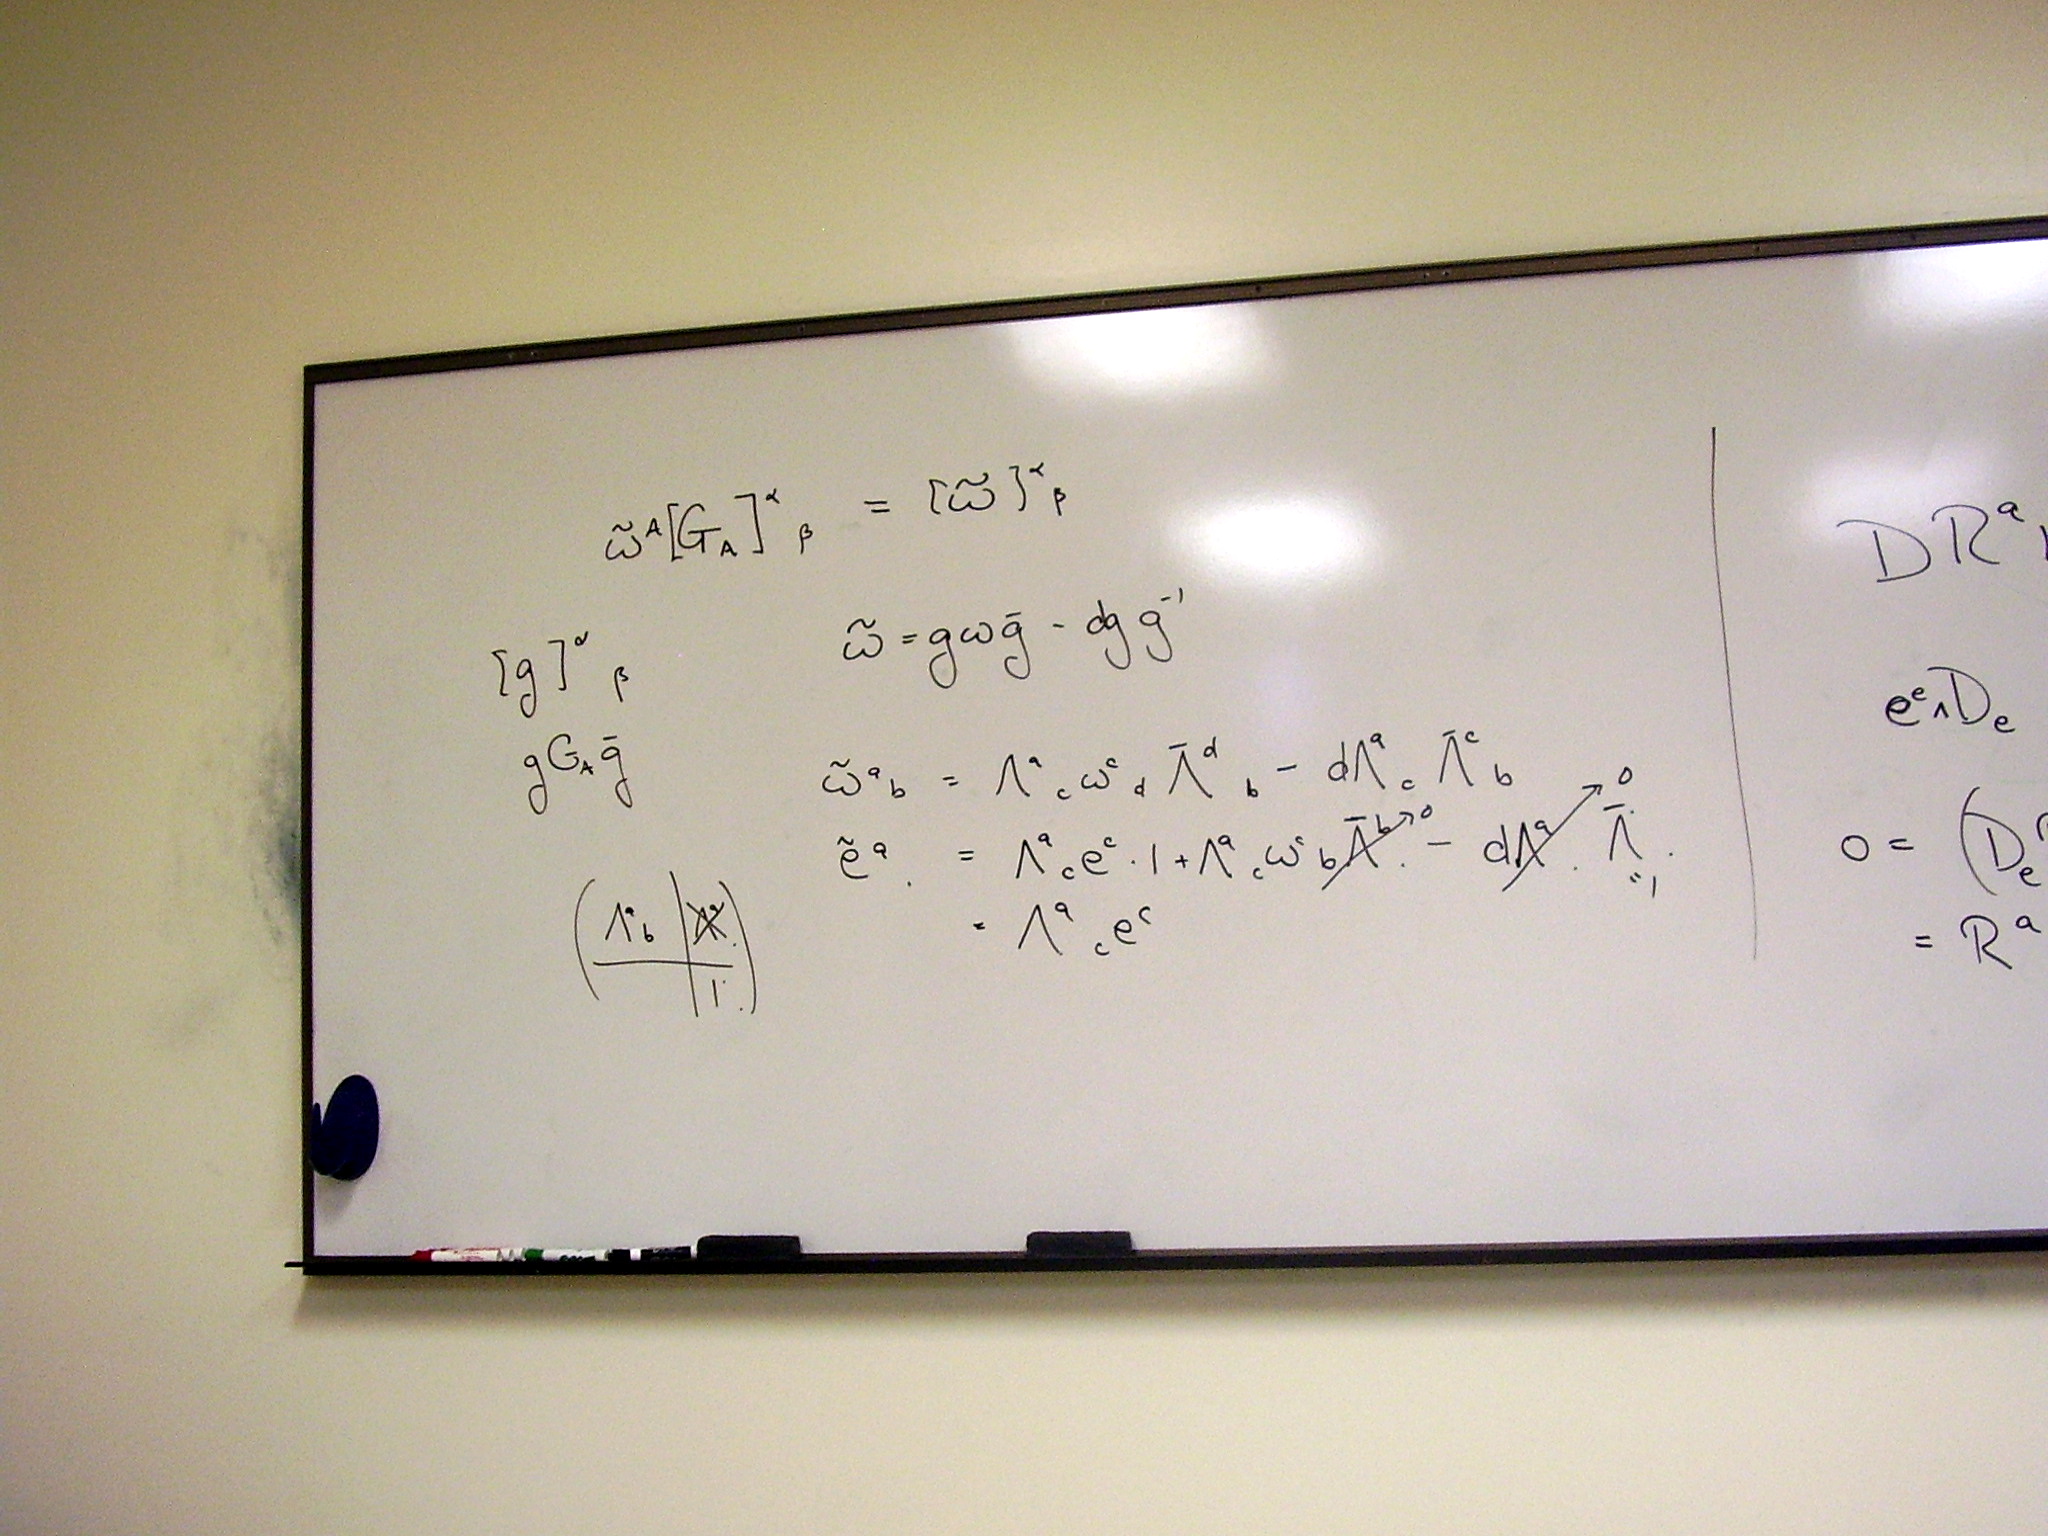 ω̃ᴬ[G_A]^α_β = [ω̃]^α_β
[g]^α_β
ω̃ = gωḡ - dg g⁻¹
gG_Aḡ
ω̃^a_b = Λ^a_c ω^c_d Λ̄^d_b - dΛ^a_c Λ̄^c_b
ẽ^a_. = Λ^a_c e^c · 1 + Λ^a_c ω^c_b Λ̄^b_. → 0 - dΛ^a_. → 0 Λ̄^._. "1
( Λ^a_b | Λ^a_. )
( | 1^._. )
= Λ^a_c e^c
DR^a
e^e ∧ D_e
0 = (D_e
= R^a